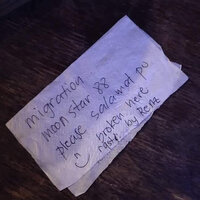 migration
moon star 88
please salamat po
broken here